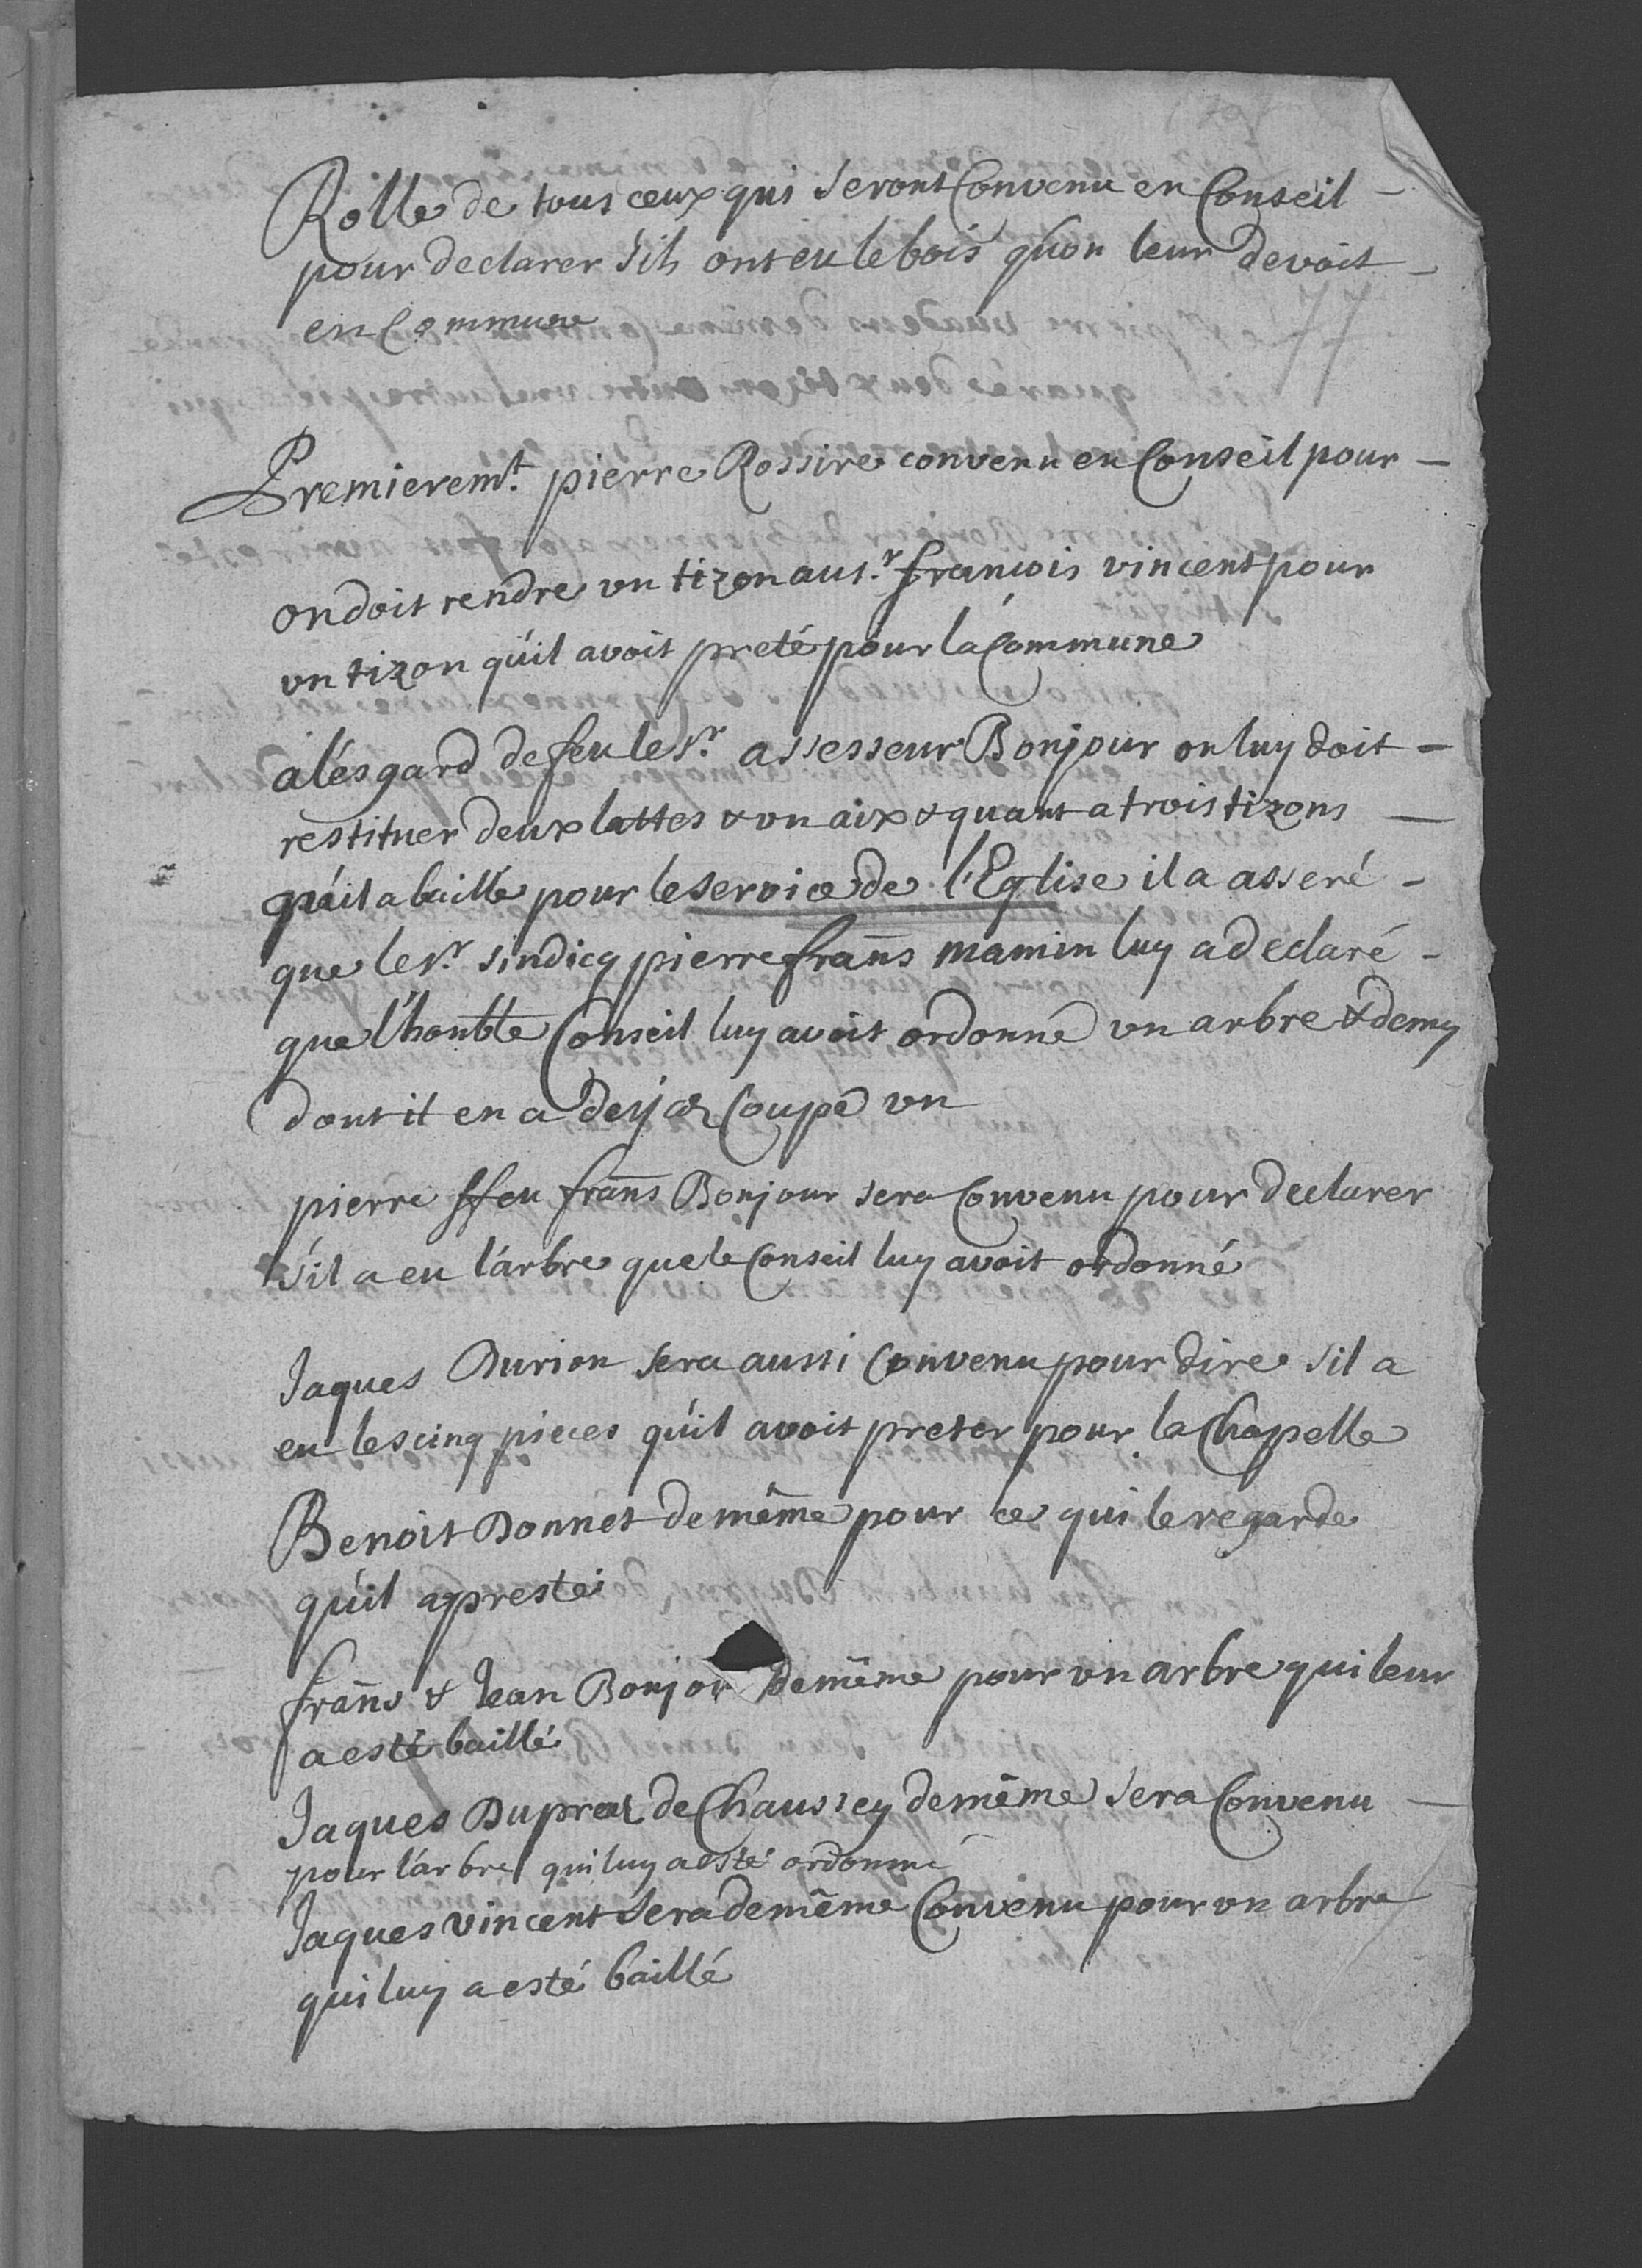 Rolle de tous ceux qui seront Convenu en Conseil
pour declarer s'ils ont eu le bois qu'on leur devoit
en Commune
77
Premierem.t pierre Rossire convenu en Conseil pour
on doit rendre un tizon au s.r francois vincent pour
un tizon qu'il avoit preté pour la Commune
a l'ésgard de feu le s.r assesseur Bonjour on luy doit
restituer deux lattes & un aix & quant a trois tizons
qu'il a baillé pour le service de l'Eglise il a asseré
que le s.r sindicq pierre frans mamin luy a declaré
que l'honble Conseil luy avoit ordonné un arbre & demy
dont il en a deyja Coupé un
pierre ffeu frans Bonjour sera Convenu pour declarer
s'il a eu l'arbre que le Conseil luy avoit ordonné
Jaques Durion sera aussi Convenu pour dire s'il a
eu les cinq pieces qu'il avoit preter pour la Chapelle
Benoit Donnet de même pour ce qui le regarde
qu'il a presté
frans & Jean Bonjou de même pour un arbre qui leur
a esté baillé
Jaques Dupraz de Chaussey de même sera Convenu
pour l'arbre qui luy a esté ordonné
Jaques vincent sera de même Convenu pour un arbre
qui luy a esté baillé